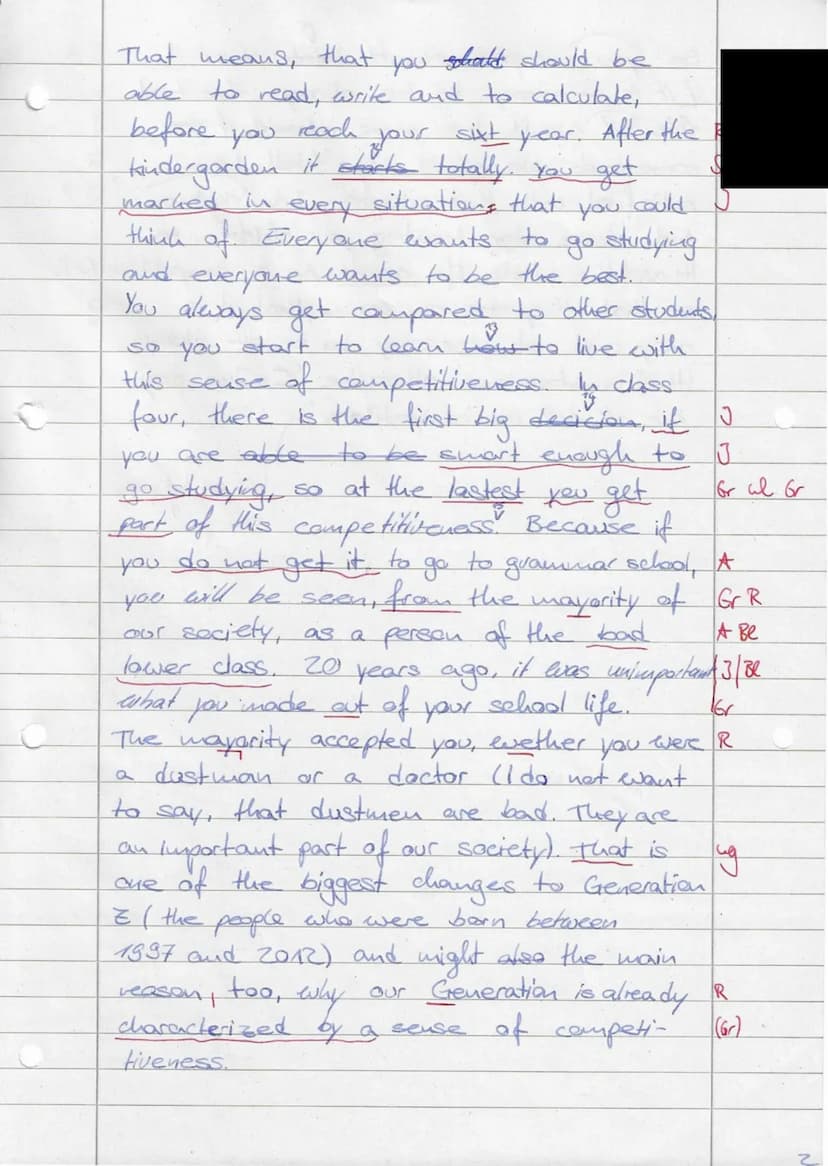 That means, that you should be
able to read, write and to calculate,
before you reach your sixt year. After the R
kindergarden it starts totally. You get S
marked in every situation, that you could J
think of. Everyone wants to go studying
and everyone wants to be the best.
You always get compared to other students,
so you start to learn how to live with
this sense of competitiveness. In class
four, there is the first big decicion, if J
you are able to be smart enough to J
go studying, so at the lastest you get Gr wl Gr
part of this competitiveness. Because if
you do not get it to go to grammar school, A
you will be seen, from the mayority of Gr R
our society, as a person of the bad A Be
lower class. 20 years ago, it was unimportant J/Be
what you made out of your school life. Gr
The mayority accepted you, wether you were R
a dustman or a doctor (I do not want
to say, that dustmen are bad. They are
an important part of our society). That is ug
one of the biggest changes to Generation
Z (the people who were born between
1997 and 2012) and might also the main
reason, too, why our Generation is already R
characterized by a sense of competi- (Gr)
tiveness.
2